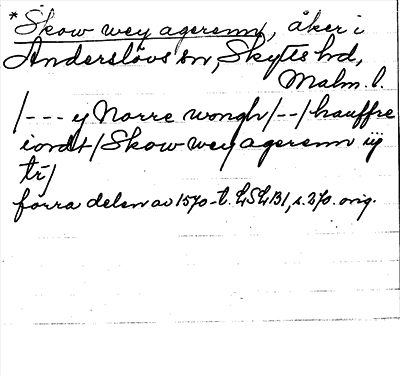 *Skow wey agerenn, åker i
Anderslövs sn, Skytts hd,
Malm. l.
/--- y Norre wongh /--/ hauffre
iordt / Skow wey agerenn iij
tr/
förra delen av 1570-t. LSLB1, s. 270. orig.